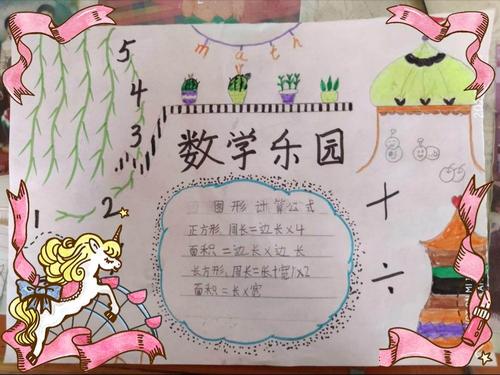 math
5
4
3
2
1
数学乐园
图形计算公式
正方形,周长=边长×4
面积=边长×边长
长方形,周长=(长+宽)×2
面积=长×宽
+
÷